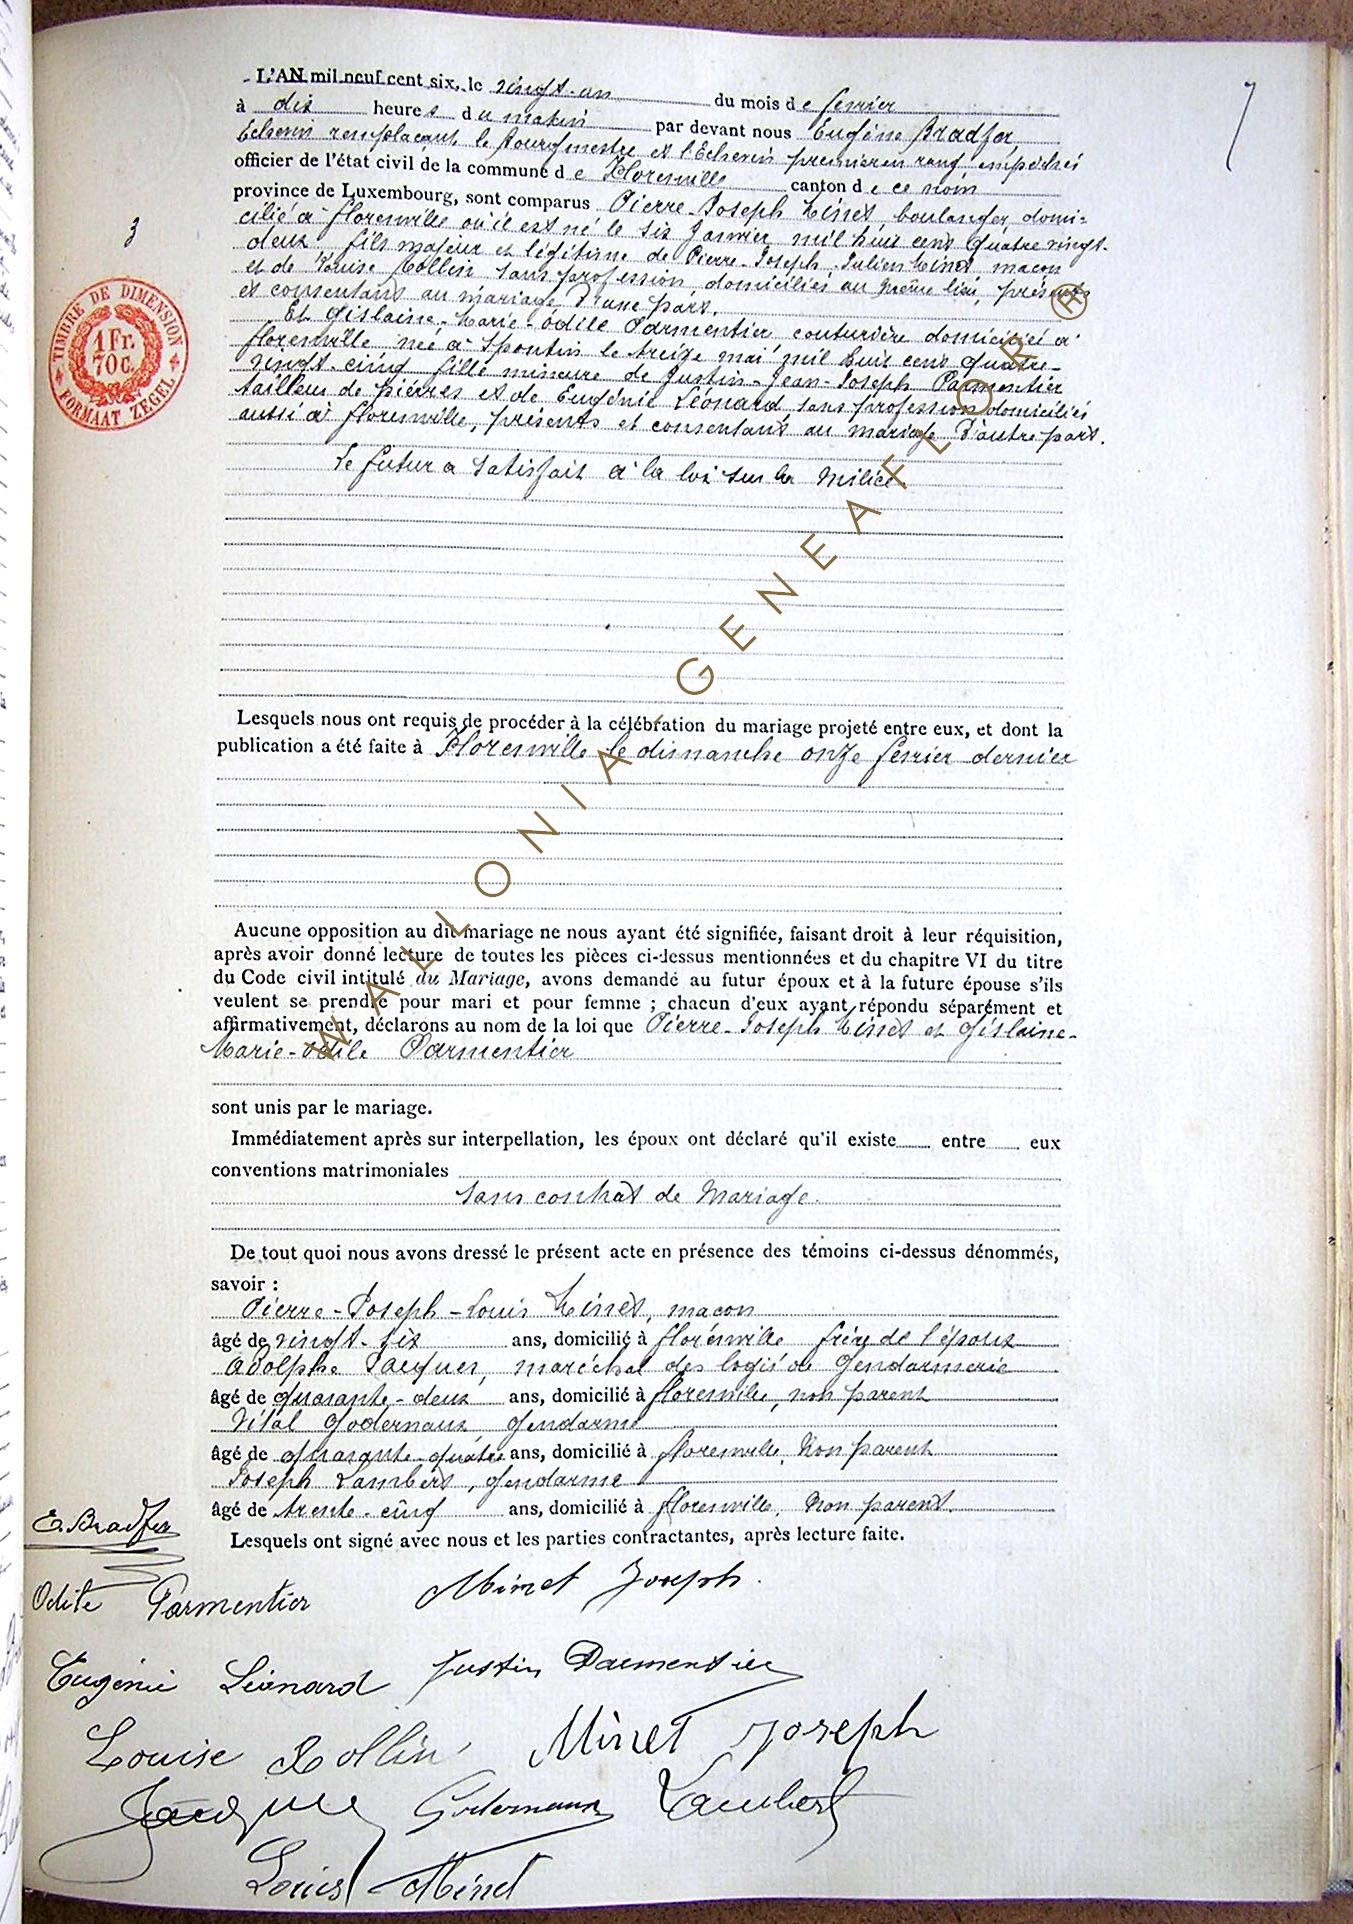 7
L'AN mil neuf cent six, le vingt-un du mois de février
à dix heures du matin par devant nous Eugène Bradfer,
Echevin remplaçant le Bourgmestre et l'Echevin premier en rang empêchés
officier de l'état civil de la commune de Florenville canton de ce nom
province de Luxembourg, sont comparus Pierre-Joseph Minet boulanger, domi-
cilié à Florenville où il est né le six Janvier mil huit cent quatre vingt-
3
deux fils majeur et légitime de Pierre-Joseph-Julien Minet, maçon
et de Louise Rollin sans profession, domiciliés au même lieu, présents
et consentant au mariage d'une part.
Et Gislaine-Marie-Odile Parmentier, couturière domiciliée à
Florenville née à Spontin le treize mai mil huit cent quatre-
vingt-cinq fille mineure de Justin-Jean-Joseph Parmentier
tailleur de pierres et de Eugénie Léonard sans profession domiciliés
aussi à Florenville, présents et consentant au mariage d'autre part.
TIMBRE DE DIMENSION
1 Fr.
70 C.
FORMAAT ZEGEL
Le futur a satisfait à la loi sur la Milice
Lesquels nous ont requis de procéder à la célébration du mariage projeté entre eux, et dont la
publication a été faite à Florenville le dimanche onze février dernier
Aucune opposition au dit mariage ne nous ayant été signifiée, faisant droit à leur réquisition,
après avoir donné lecture de toutes les pièces ci-dessus mentionnées et du chapitre VI du titre
du Code civil intitulé du Mariage, avons demandé au futur époux et à la future épouse s'ils
veulent se prendre pour mari et pour femme ; chacun d'eux ayant répondu séparément et
affirmativement, déclarons au nom de la loi que Pierre-Joseph Minet et Gislaine-
Marie-Odile Parmentier
sont unis par le mariage.
Immédiatement après sur interpellation, les époux ont déclaré qu'il existe entre eux
conventions matrimoniales
sans contrat de Mariage.
De tout quoi nous avons dressé le présent acte en présence des témoins ci-dessus dénommés,
savoir :
Pierre-Joseph-Louis Minet, maçon
âgé de vingt-six ans, domicilié à Florenville frère de l'époux
Adolphe Jacques, maréchal des logis de Gendarmerie
âgé de quarante-deux ans, domicilié à Florenville, non parent
Vital Godernaux, gendarme
âgé de quarante-quatre ans, domicilié à Florenville, Non parent
Joseph Lambert, gendarme
âgé de trente-cinq ans, domicilié à Florenville, Non parent.
Lesquels ont signé avec nous et les parties contractantes, après lecture faite.
E. Bradfer
Odile Parmentier Minet Joseph.
Eugénie Léonard Justin Parmentier
Louise Rollin Minet Joseph
Jacques Godernaux Lambert
Louis Minet
WALLONIA-GENEAFLOR®